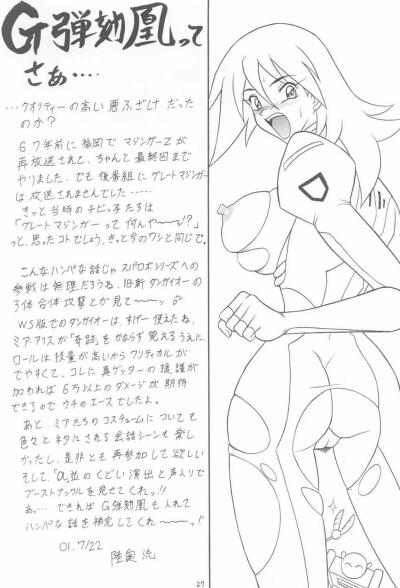 G弾劾凰って
さぁ‥‥
‥‥クオリティーの高い悪ふざけだった
のか？
6.7年前に福岡でマジンガーZが
再放送されて、ちゃんと最終回まで
やりました。でも後番組にグレートマジンガー
は放送されませんでした‥‥‥
きっと当時のチビっ子たちは
「グレートマジンガーって何んや〜〜ッ!?」
っと、思ったコトでしょう。きっと今のワシと同じで。
こんなハンパな話じゃスパロボシリーズへの
参戦は無理だろうね、旧新ダンガイオーの
3体合体攻撃とか見て〜〜ッ
WS版でのダンガイオーは、すげー使えたね。
ミア・アリスが「奇跡」をかならず覚えるうえに、
ロールは技量が高いからクリティカルが
でやすくて、コレに真ゲッターの援護が
加われば6万以上のダメージが期待
できるのでウチのエースでしたよ。
あと、ミアたちのコスチュームについても
色々とネタにされる会話シーンも楽し
かったし、是非とも再参加して欲しい
そして、「α」並のくどい演出と声入りで
ブーストナックルを見せてくれッ!!
あっ‥‥できればG弾劾凰も入れて
ハンパな話を補完してくれ〜〜ッ!!
01.7/22
陸奥流
27